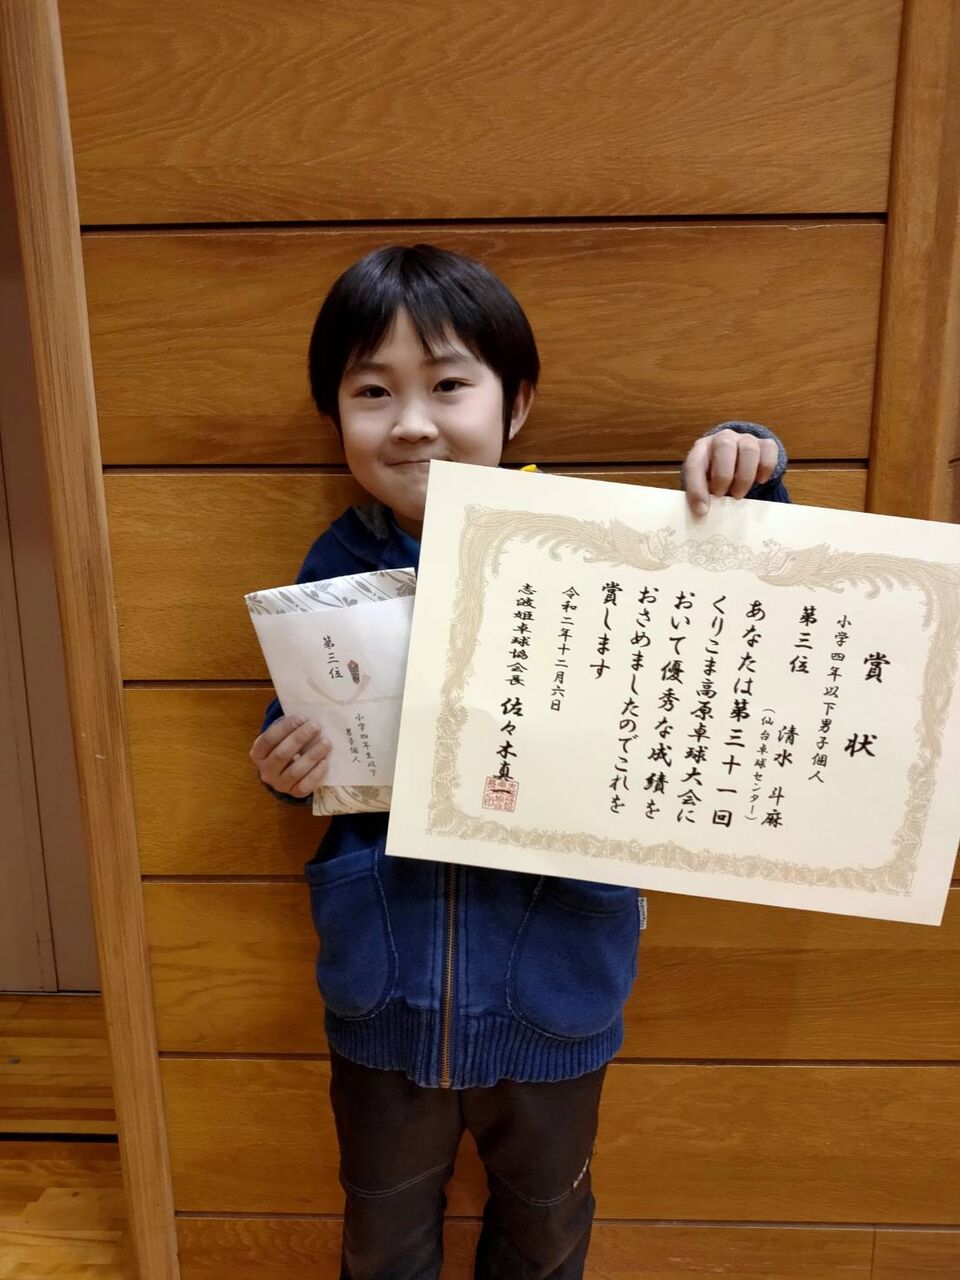 賞状
小学四年以下男子個人
第三位
清水斗麻
（仙台卓球センター）
あなたは第三十一回
くりこま高原卓球大会に
おいて優秀な成績を
おさめましたのでこれを
賞します
令和二年十二月六日
志波姫卓球協会長 佐々木真一
第三位
小学四年生以下
男子個人